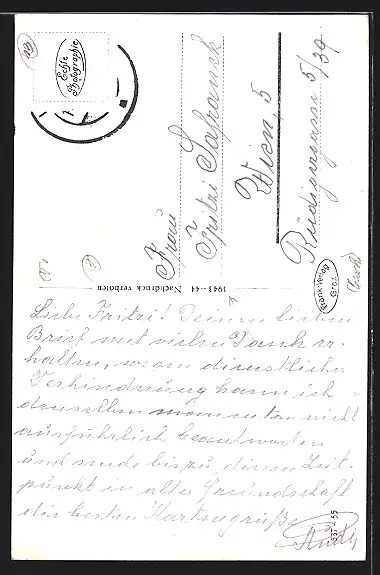 Echte
Photographie
Frau
Fritzi Safranek
Wien, 5
Rüdigergasse 5/39
1943-44 Nachdruck verboten
Frank-Verlag
Graz
Liebe Fritzi! Deinen lieben
Brief mit vielen Dank er-
halten, wegen dienstlicher
Verhinderung kann ich
denselben momentan nicht
ausführlich beantworten
und sende bis zu diesen Zeit-
punkt in alter Freundschaft
die besten Kartengrüße
Rudi